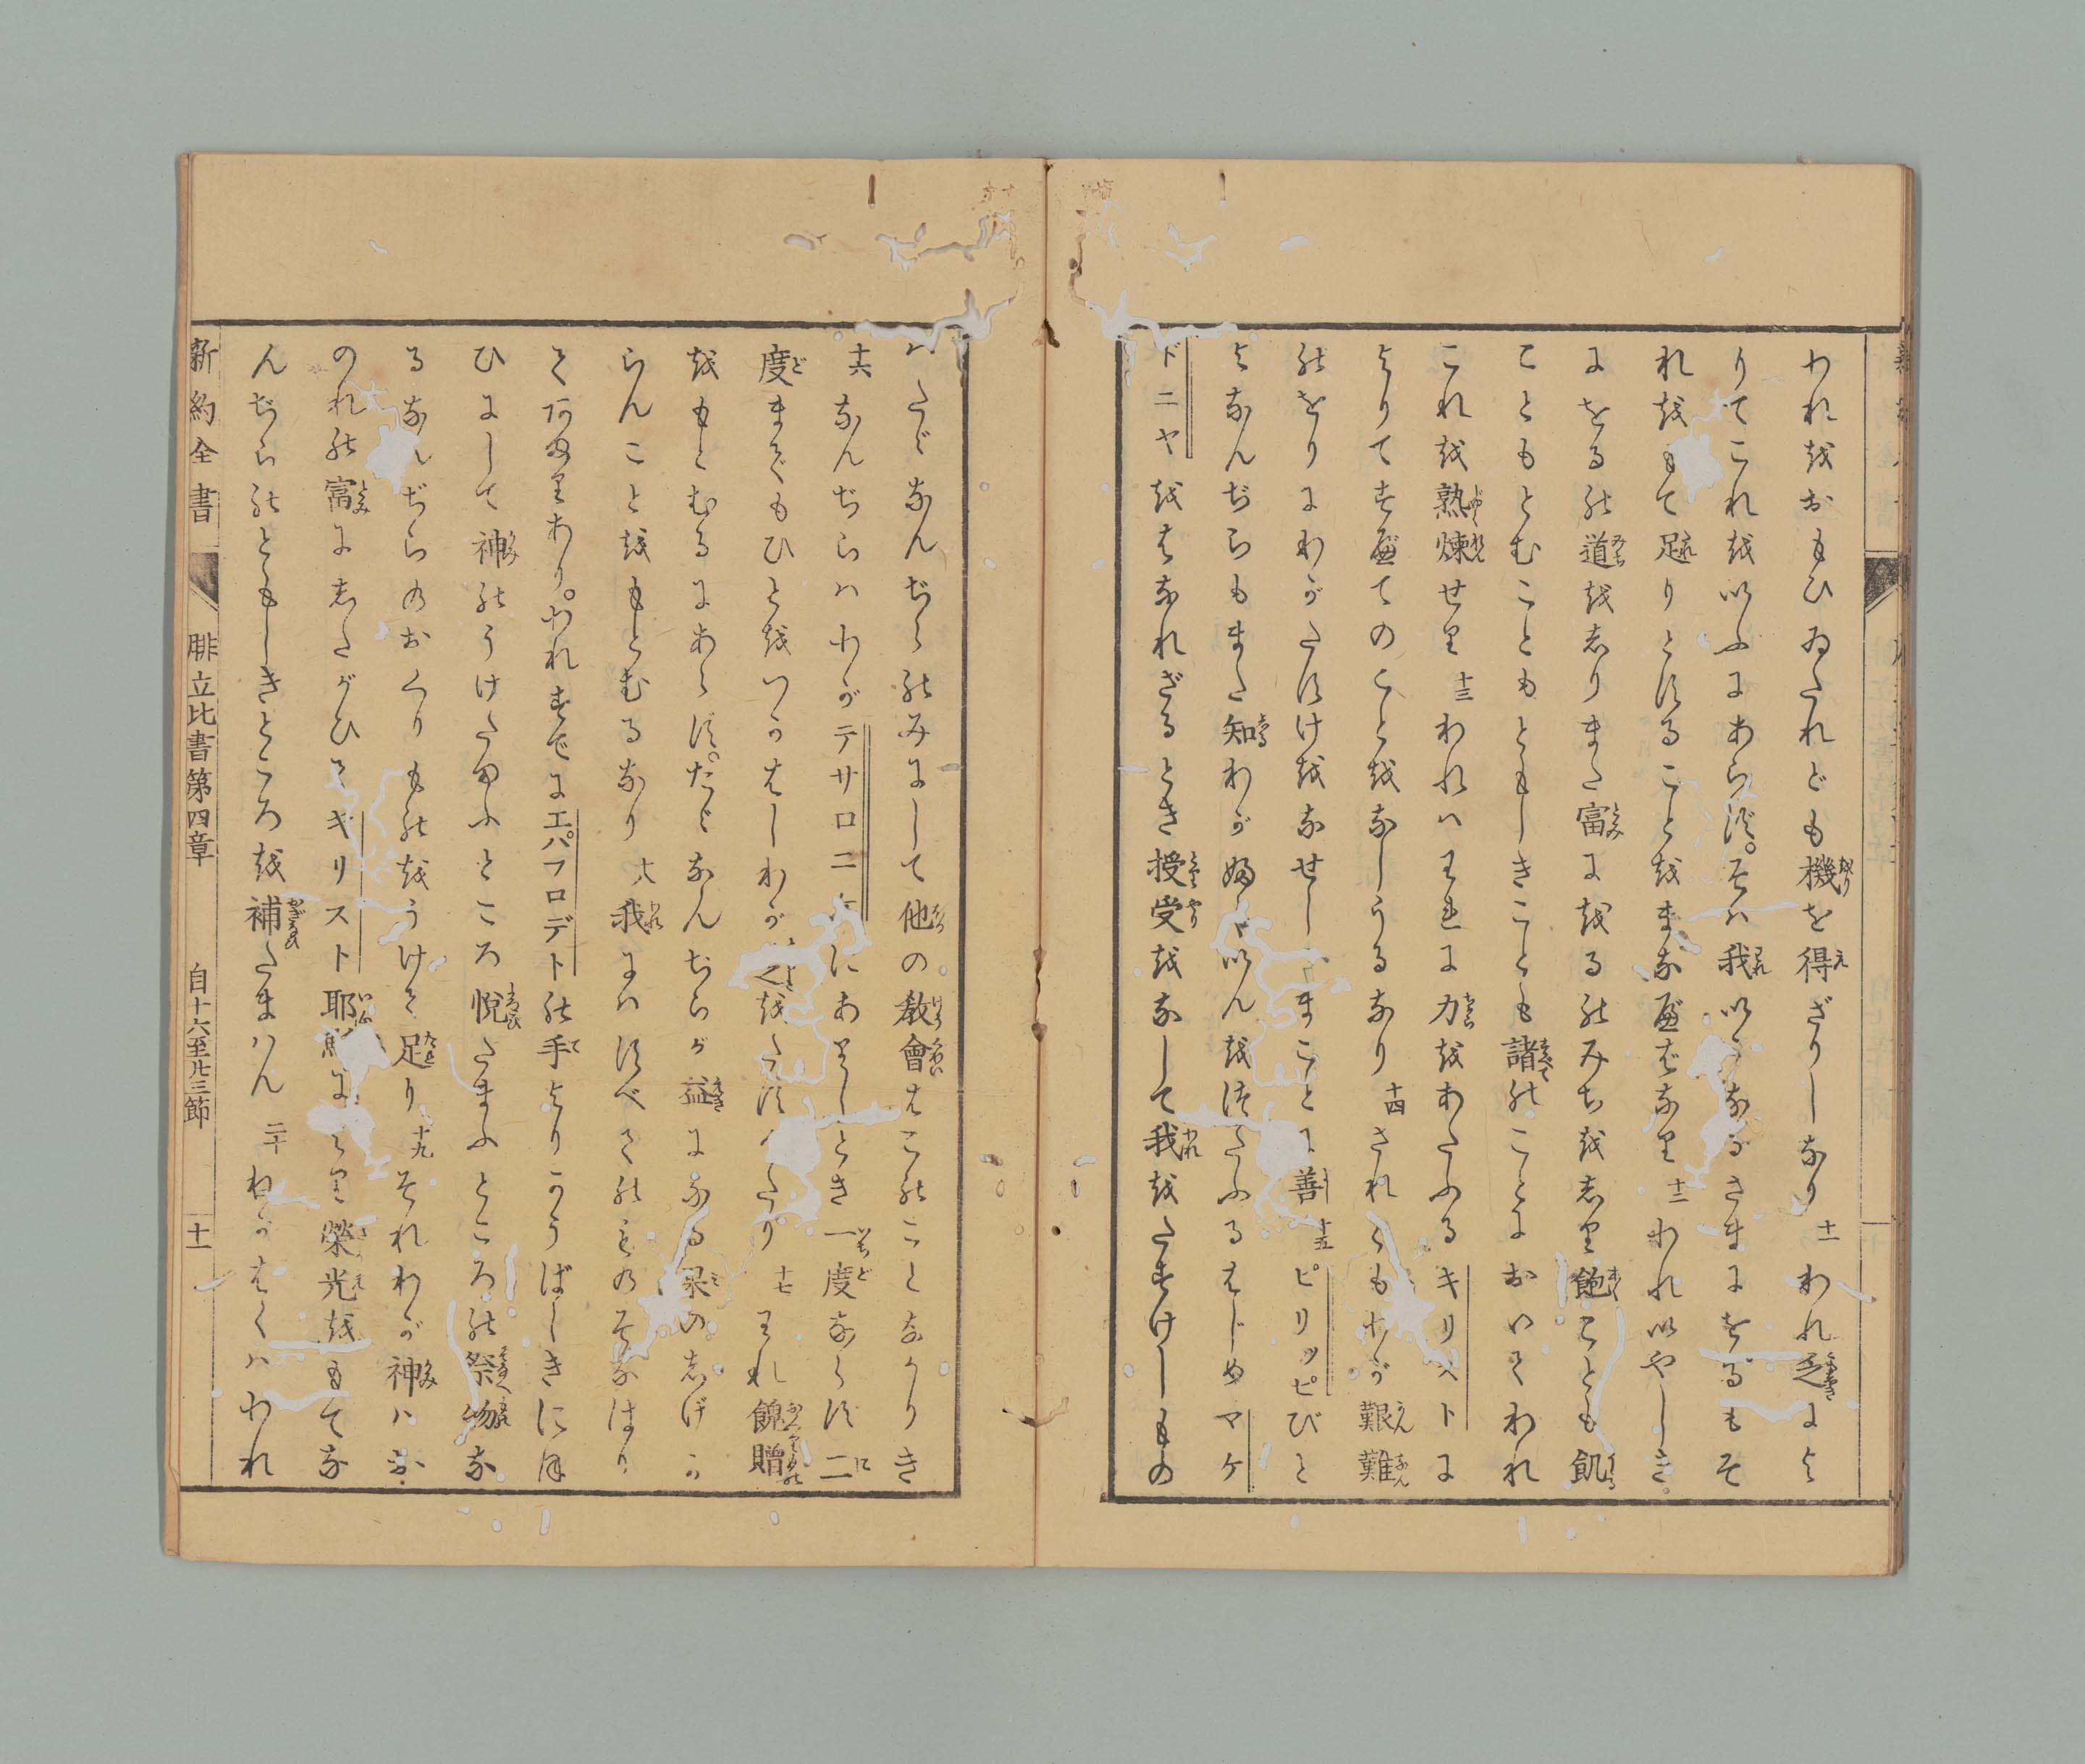 われをおもひゐたれども機を得ざりしなり 十一 われ乏きによ
りてこれを以ふにあらず。そハ我いかなるさまにをるもそ
れをもて足りとすることをまなべばなり 十二 われいやしき
にをるの道をしりまた富にをるのみちをしり飽ことも飢
こともとむこともともしきことも諸のことにおいてわれ
これを熟煉せり 十三 われハわれに力をあたふるキリストに
よりてすべてのことをなしうるなり 十四 されどもわが艱難
のをりにわがたすけをなせしハまことに善 十五 ピリッピびと
よなんぢらもまた知わが福いんをつたふるはじめマケ
ドニヤをはなれざるとき授受をなして我をたすけしもの
ハたゞなんぢらのみにして他の教會はこのことなかりき
十六 なんぢらハわがテサロニにありしとき一度ならず二
度までもひとをつかはしわが乏をたすけたり 十七 われ餽贈
をもとむるにあらず。たゞなんぢらが益になる果のしげか
らんことをもとむるなり 十八 我にハすべてのものそなはり
てあまりあり。われすでにエパフロデトの手よりかうばしきにほ
ひにして神のうけたまふところ悦たまふところの祭物な
るなんぢらのおくりものをうけて足り 十九 それわが神ハお
のれの富にしたがひてキリスト耶穌により榮光をもてな
んぢらのともしきところを補たまハん 二十 ねがはくハわれ
新約全書 腓立比書第四章 自十六至廿三節 十一